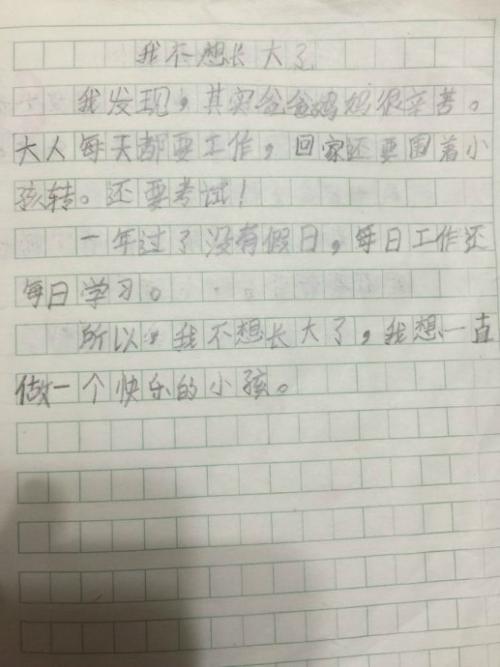 我不想长大了
我发现，其实爸爸妈妈很辛苦。
大人每天都要工作，回家还要围着小
孩转。还要考试！
一年过了没有假日，每日工作还
每日学习。
所以，我不想长大了，我想一直
做一个快乐的小孩。